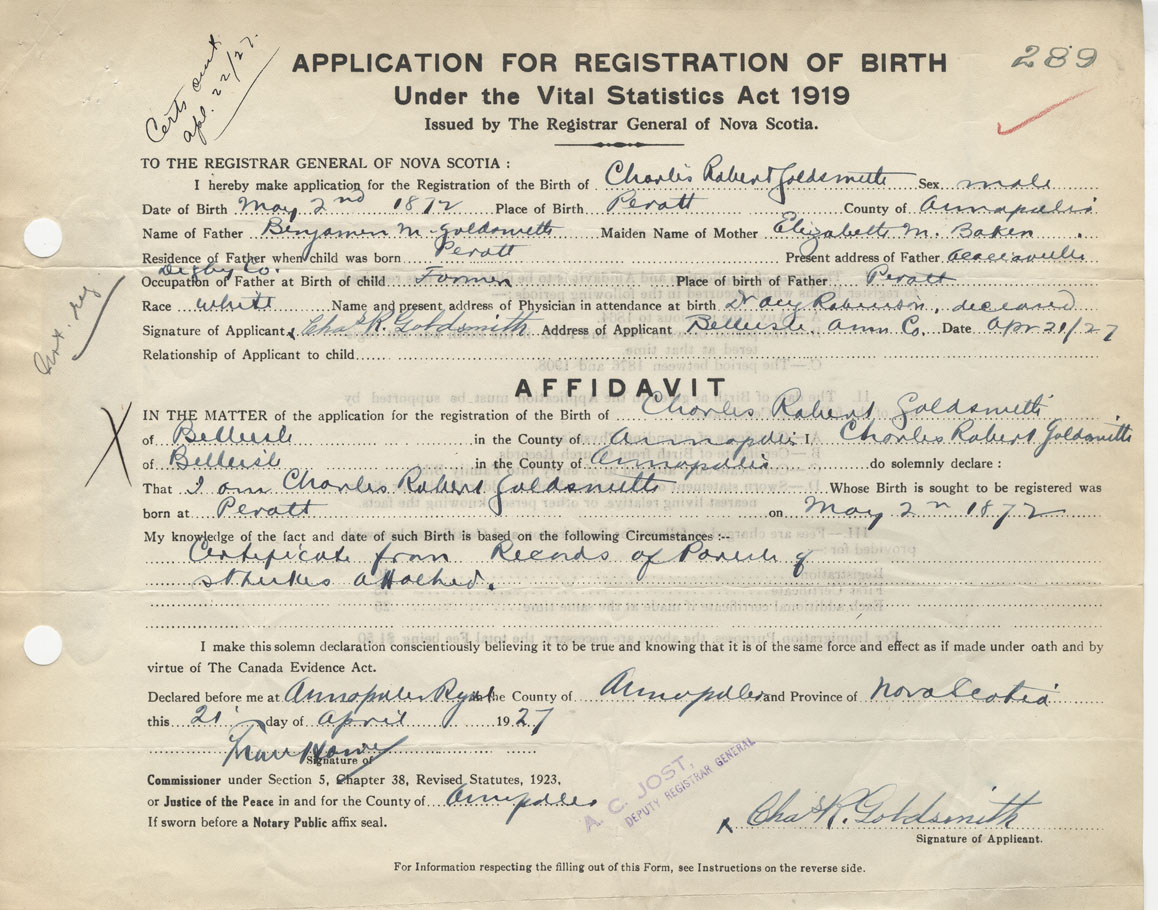 289
Certs sent
Apl. 22/27.
APPLICATION FOR REGISTRATION OF BIRTH
Under the Vital Statistics Act 1919
Issued by The Registrar General of Nova Scotia.
TO THE REGISTRAR GENERAL OF NOVA SCOTIA :
I hereby make application for the Registration of the Birth of Charles Robert Goldsmith Sex male
Date of Birth May 2nd 1872 Place of Birth Perott County of Annapolis
Name of Father Benjamin M. Goldsmith Maiden Name of Mother Elizabeth M. Baken
Residence of Father when child was born Perott Present address of Father
Digby Co.
Occupation of Father at Birth of child Farmer Place of birth of Father Perott
Race white Name and present address of Physician in attendance at birth Robinson, deceased
Signature of Applicant x Chas R. Goldsmith Address of Applicant Belleisle Ann Co. Date Apr 21/27
Relationship of Applicant to child
AFFIDAVIT
IN THE MATTER of the application for the registration of the Birth of Charles Robert Goldsmith
of Belleisle in the County of Annapolis I, Charles Robert Goldsmith
of Belleisle in the County of Annapolis do solemnly declare :
That I am Charles Robert Goldsmith Whose Birth is sought to be registered was
born at Perott on May 2n 1872
My knowledge of the fact and date of such Birth is based on the following Circumstances :--
Certificate from Records of Parish of
St Lukes attached.
I make this solemn declaration conscientiously believing it to be true and knowing that it is of the same force and effect as if made under oath and by
virtue of The Canada Evidence Act.
Declared before me at Annapolis Royal in the County of Annapolis and Province of Nova Scotia
this 21 day of April 1927
Signature of
Commissioner under Section 5, Chapter 38, Revised Statutes, 1923,
or Justice of the Peace in and for the County of Annapolis
If sworn before a Notary Public affix seal.
A. C. JOST,
DEPUTY REGISTRAR GENERAL
x Chas R. Goldsmith
Signature of Applicant.
For Information respecting the filling out of this Form, see Instructions on the reverse side.